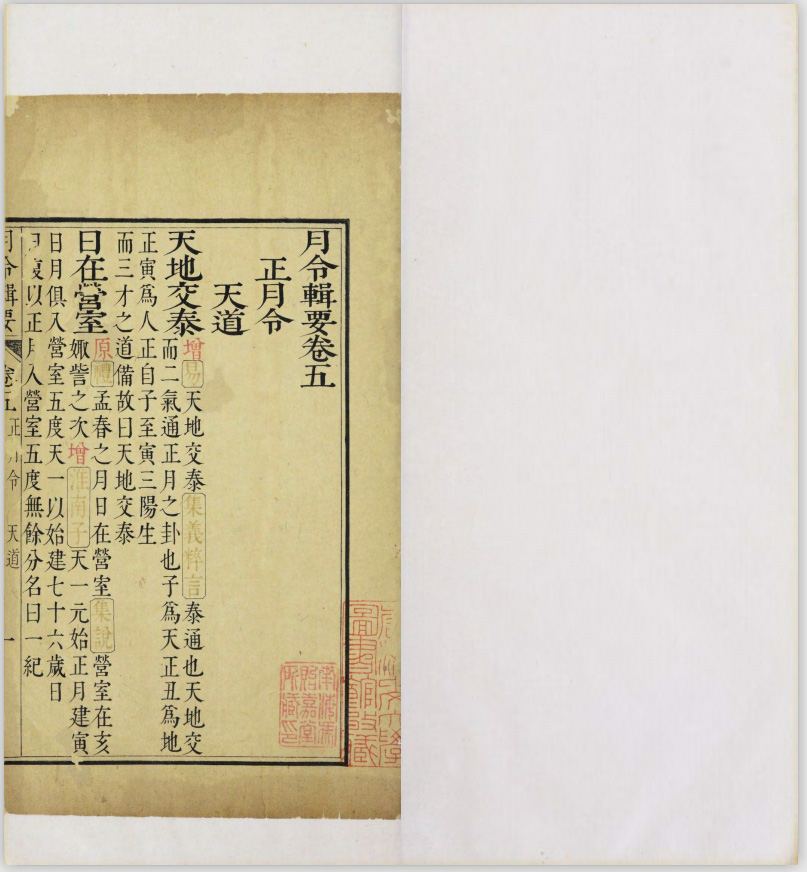 月令輯要卷五
正月令
天道
天地交泰增易天地交泰集義粹言泰通也天地交
而二氣通正月之卦也子爲天正丑爲地
正寅爲人正自子至寅三陽生
而三才之道備故曰天地交泰
日在營室原禮孟春之月日在營室集說營室在亥
娵訾之次增淮南子天一元始正月建寅
日月俱入營室五度天一以始建七十六歲日
月復以正月入營室五度無餘分名曰一紀
月令輯要 卷五 正月令 天道 一